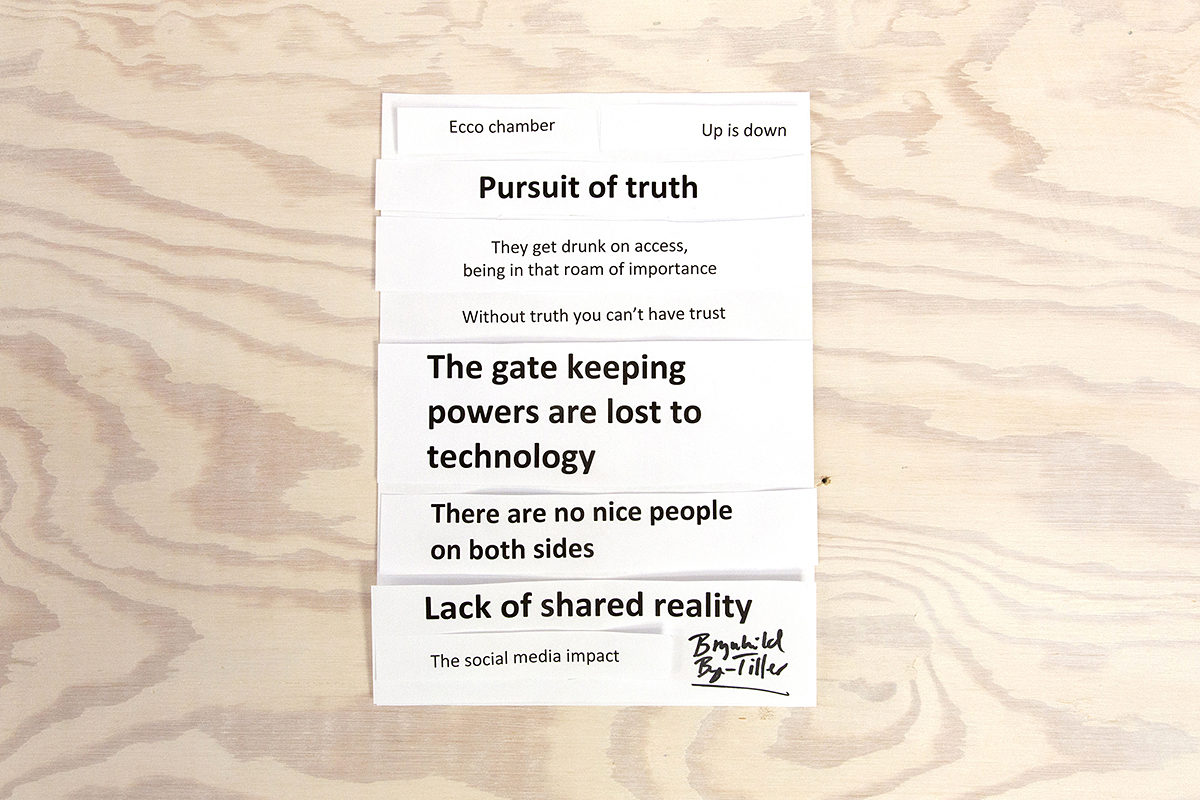 Ecco chamber
Up is down
Pursuit of truth
They get drunk on access,
being in that roam of importance
Without truth you can't have trust
The gate keeping
powers are lost to
technology
There are no nice people
on both sides
Lack of shared reality
The social media impact
Brynhild
Bye-Tiller